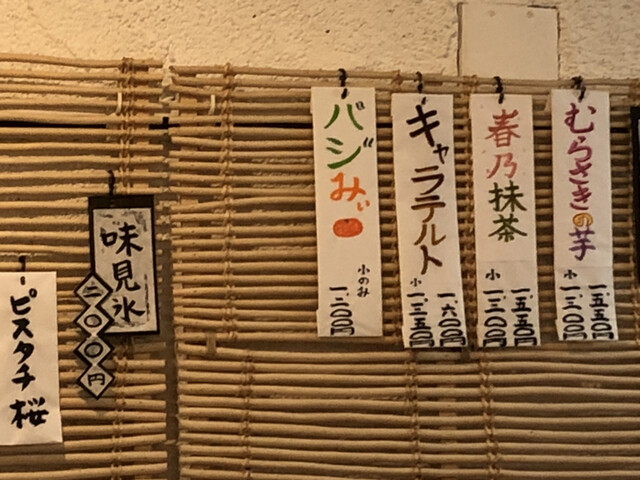 むらさきの芋
一、五五〇
小
一、三〇〇
春乃抹茶
一、五五〇
小
一、三〇〇
キャラテルト
一、六〇〇
小
一、三五〇
バジみぃ
小のみ
一、二〇〇
味見氷
二〇〇円
ピスタチ桜